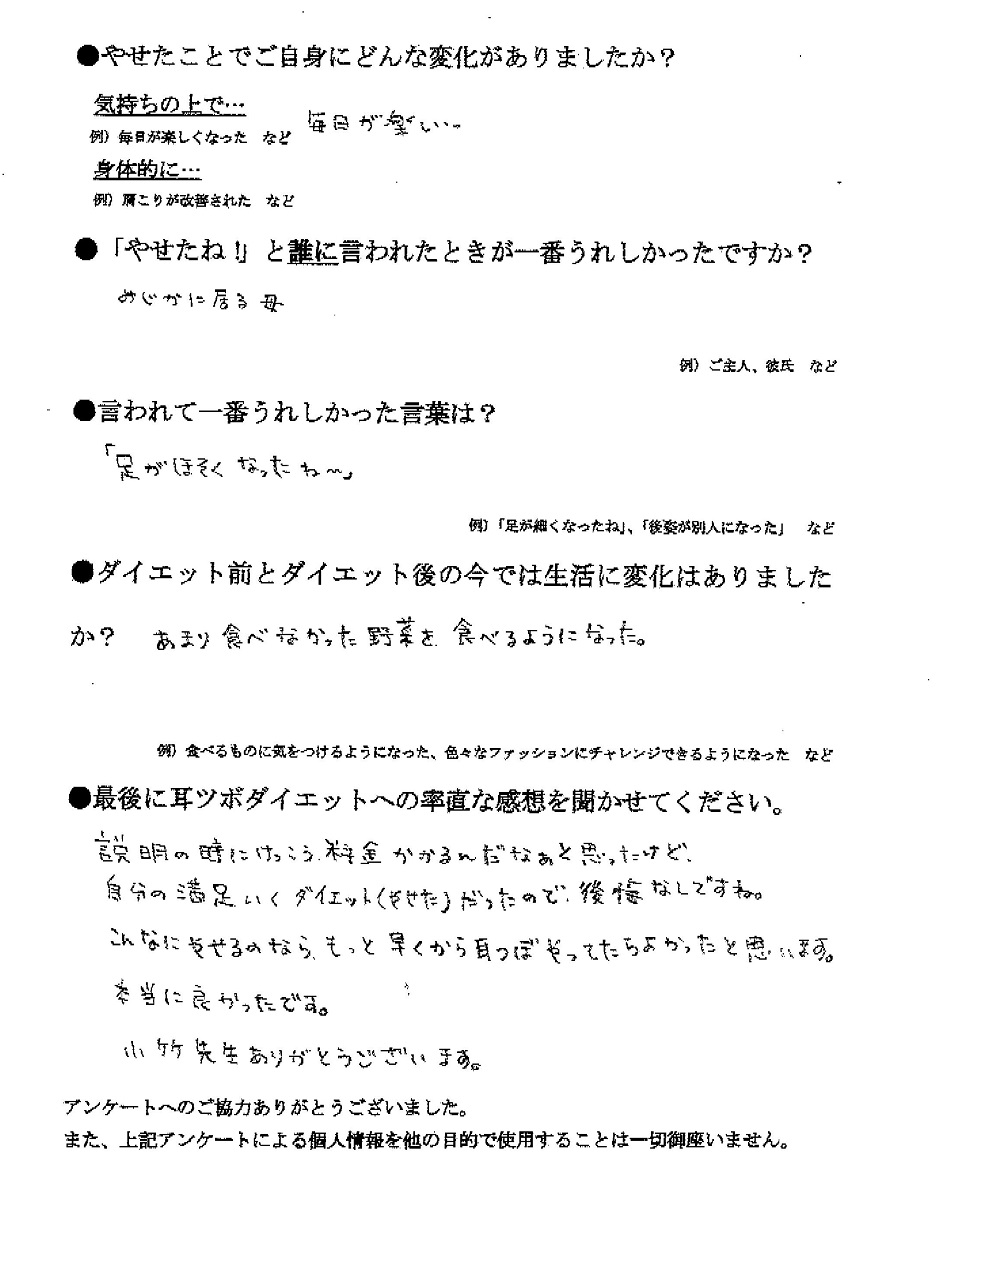 ●やせたことでご自身にどんな変化がありましたか？
気持ちの上で…
毎日が楽しい〜
例）毎日が楽しくなった　など
身体的に…
例）肩こりが改善された　など
●「やせたね！」と誰に言われたときが一番うれしかったですか？
めじかに居る母
例）ご主人、彼氏　など
●言われて一番うれしかった言葉は？
「足がほそくなったね〜」
例）「足が細くなったね」、「後姿が別人になった」　など
●ダイエット前とダイエット後の今では生活に変化はありました
か？　あまり食べなかった野菜を食べるようになった。
例）食べるものに気をつけるようになった、色々なファッションにチャレンジできるようになった　など
●最後に耳ツボダイエットへの率直な感想を聞かせてください。
説明の時にけっこう料金かかるんだなぁと思ったけど、
自分の満足いくダイエット（やせた）だったので、後悔なしですね。
こんなにやせるのなら、もっと早くから耳つぼやってたらよかったと思います。
本当に良かったです。
小竹先生ありがとうございます。
アンケートへのご協力ありがとうございました。
また、上記アンケートによる個人情報を他の目的で使用することは一切御座いません。